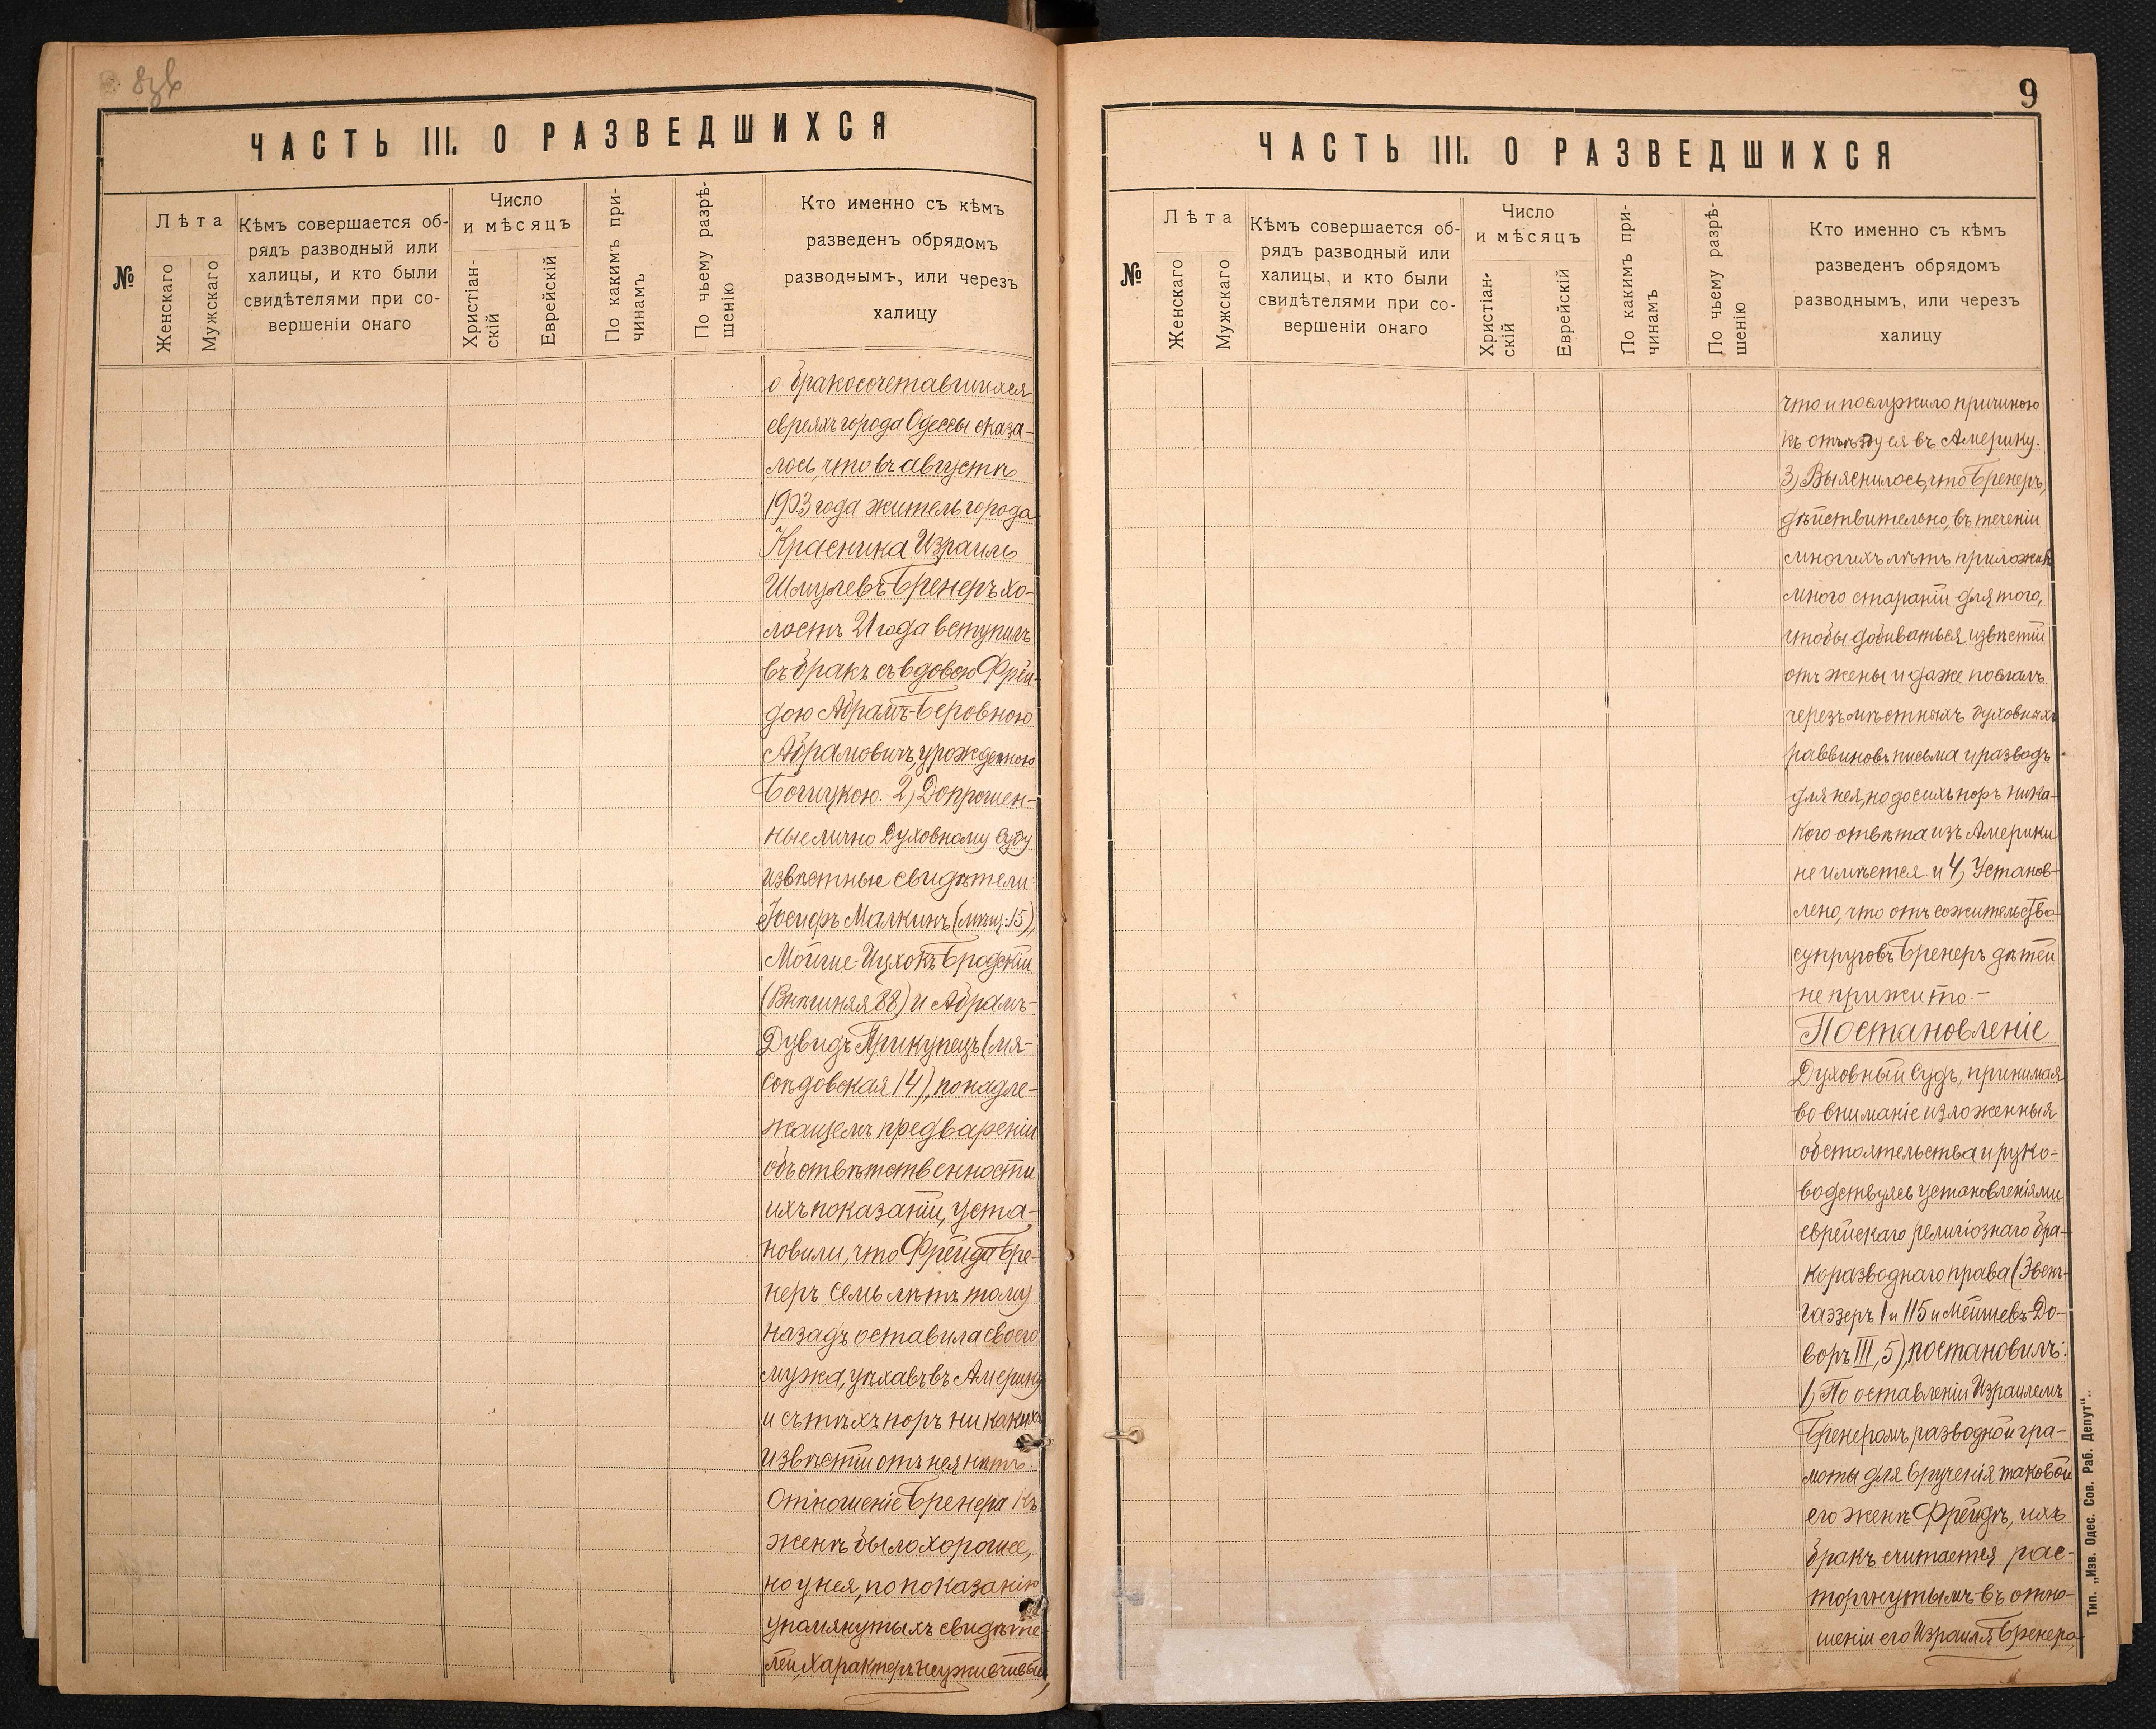 8зв
ЧАСТЬ III. О РАЗВЕДШИХСЯ
№
Лѣта
Женскаго
Мужскаго
Кѣмъ совершается об-
рядъ разводный или
халицы, и кто были
свидѣтелями при со-
вершеніи онаго
Число
и мѣсяцъ
Христіан-
скій
Еврейскій
По какимъ при-
чинамъ
По чьему разрѣ-
шенію
Кто именно съ кѣмъ
разведенъ обрядомъ
разводнымъ, или черезъ
халицу
о бракосочетавшихся
евреяхъ города Одессы оказа-
лось, что въ августѣ
1903 года житель города
Красника Израиль
Шмулевъ Бренеръ хо-
лостъ 21 года вступилъ
въ бракъ съ вдовою Фрей-
дою Абрамъ-Беровною
Абрамовичъ, урожденною
Богуцкою. 2) Допрошен-
ные лично Духовному Суду
извѣстные свидѣтели:
Іосифъ Малкинъ (мѣщ: 15),
Мойше-Ицхокъ Бродскій
(Внѣшняя 88) и Абрамъ-
Дувидъ Прикупецъ (мя-
соѣдовская 14), по надле-
жащемъ предвареніи
объ отвѣтственности
ихъ показаній, уста-
новили, что Фрейда Бре-
неръ семь лѣтъ тому
назадъ оставила своего
мужа, уѣхавъ въ Америку
и съ тѣхъ поръ никакихъ
извѣстій отъ нея нѣтъ.
Отношеніе Бренера къ
женѣ было хорошее,
но у нея, по показанію
упомянутыхъ свидѣте-
лей, характеръ неуживчивый,
9
ЧАСТЬ III. О РАЗВЕДШИХСЯ
№
Лѣта
Женскаго
Мужскаго
Кѣмъ совершается об-
рядъ разводный или
халицы, и кто были
свидѣтелями при со-
вершеніи онаго
Число
и мѣсяцъ
Христіан-
скій
Еврейскій
По какимъ при-
чинамъ
По чьему разрѣ-
шенію
Кто именно съ кѣмъ
разведенъ обрядомъ
разводнымъ, или черезъ
халицу
что и послужило причиною
къ отъѣзду ея въ Америку.
3) Выяснилось, что Бренеръ,
дѣйствительно, въ теченіи
многихъ лѣтъ приложилъ
много стараній для того,
чтобы добиваться извѣстій
отъ жены и даже послалъ
черезъ мѣстныхъ духовныхъ
раввиновъ письма и разводъ
для нея, но до сихъ поръ ника-
кого отвѣта изъ Америки
не имѣется и 4) Установ-
лено, что отъ сожительства
супруговъ Бренеръ дѣтей
не прижито.-
Постановленіе
Духовный Судъ, принимая
во вниманіе изложенныя
обстоятельства и руко-
водствуясь установленіями
еврейскаго религіознаго бра-
коразводнаго права (Эвенъ-
гаэзеръ 1 и 115 и Мейшевъ-До-
воръ III, 5), постановилъ:
1) По оставленіи Израилемъ
Бренеромъ разводной гра-
моты для врученія таковой
его женѣ Фрейдѣ, ихъ
бракъ считается рас-
торгнутымъ въ отно-
шеніи его Израиля Бренера,
Тип. „Изв. Одес. Сов. Раб. Депут".